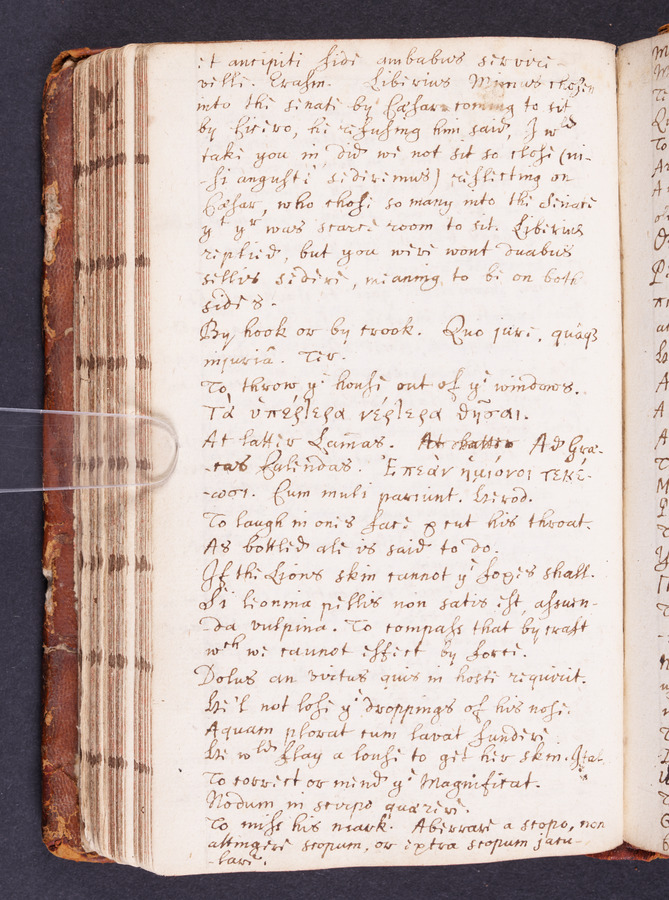 et ancipiti fide ambabus servire
velle. Erasm. Liberius Mimus chosen
into the senate by Cæsar coming to sit
by Cicero, he refusing him said, I wld
take you in did we not sit so close (ni-
-si anguste sederemus) reflecting on
Cæsar, who chose so many into the senate
yt yr was scarce room to sit. Liberius
replied, but you were wont duabus
sellis sedere, meaning to be on both
sides.
By hook or by crook. Quo jure, quáq3
injuriâ. Ter.
To throw ye house out of ye windows.
Τὰ ὑπέρτερα νέρτερα θῆσαι.
At latter Lammas. Ad Græ-
-cas Calendas. Ἐπεὰν ἡμίονοι τεκέ-
-ωσι. Cum muli pariunt. Herod.
To laugh in ones face & cut his throat.
As bottled ale is said to do.
If the Lions skin cannot ye foxes shall.
Si leonina pellis non satis est, assuen-
-da vulpina. To compass that by craft
wch we cannot effect by force.
Dolus an virtus quis in hoste requirit.
He'l not lose ye droppings of his nose.
Aquam plorat cum lavat fundere.
He wld flay a louse to get her skin. Ital.
To correct or mend ye Magnificat.
Nodum in scirpo quærere.
To miss his mark. Aberrare a scopo, non
attingere scopum, or extra scopum jacu-
-lare.